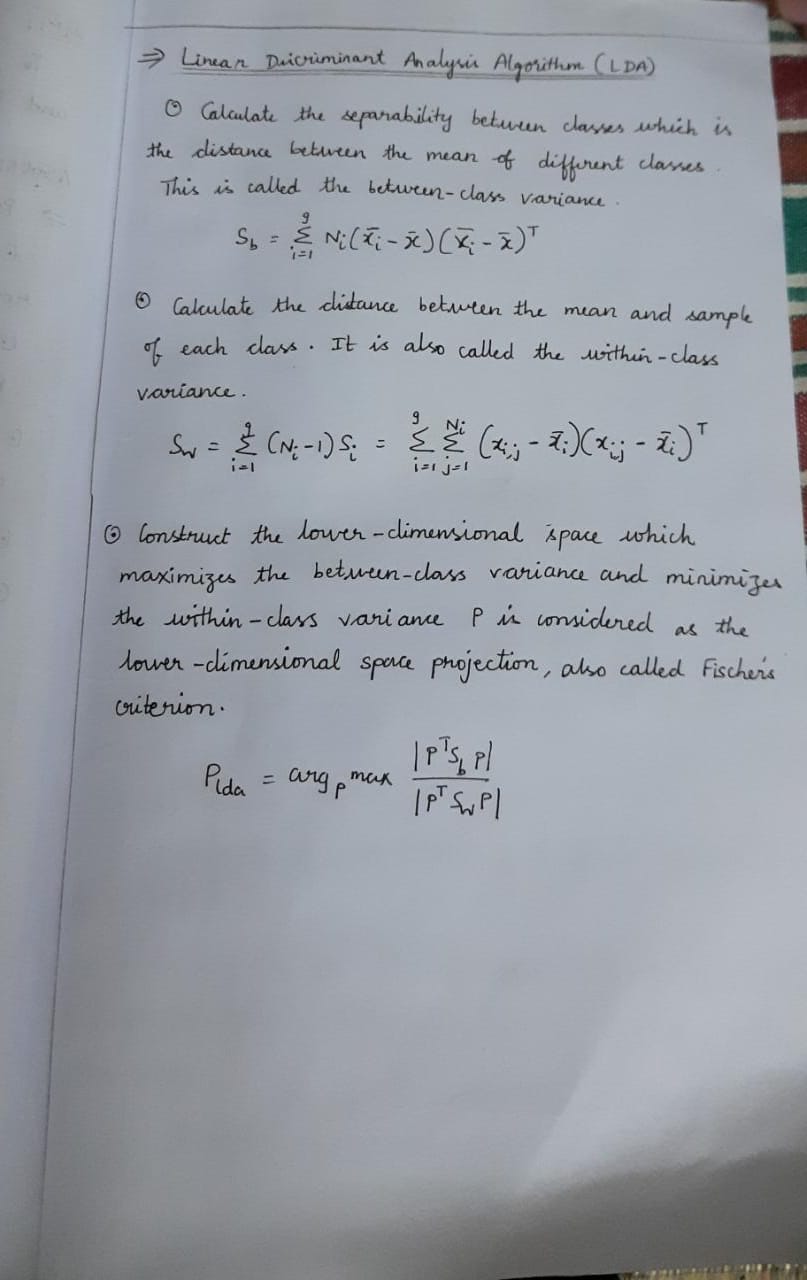 ⇒ Linear Discriminant Analysis Algorithm (LDA)
⊙ Calculate the separability between classes which is
the distance between the mean of different classes.
This is called the between-class variance.
S_b = Σ_{i=1}^{g} N_i(x̄_i - x̄)(x̄_i - x̄)^T
⊙ Calculate the distance between the mean and sample
of each class. It is also called the within-class
variance.
S_w = Σ_{i=1}^{g} (N_i-1)S_i = Σ_{i=1}^{g} Σ_{j=1}^{N_i} (x_{i,j} - x̄_i)(x_{i,j} - x̄_i)^T
⊙ Construct the lower-dimensional space which
maximizes the between-class variance and minimizes
the within-class variance P is considered as the
lower-dimensional space projection, also called Fischer's
criterion.
P_lda = arg_P max |P^T S_b P| / |P^T S_w P|